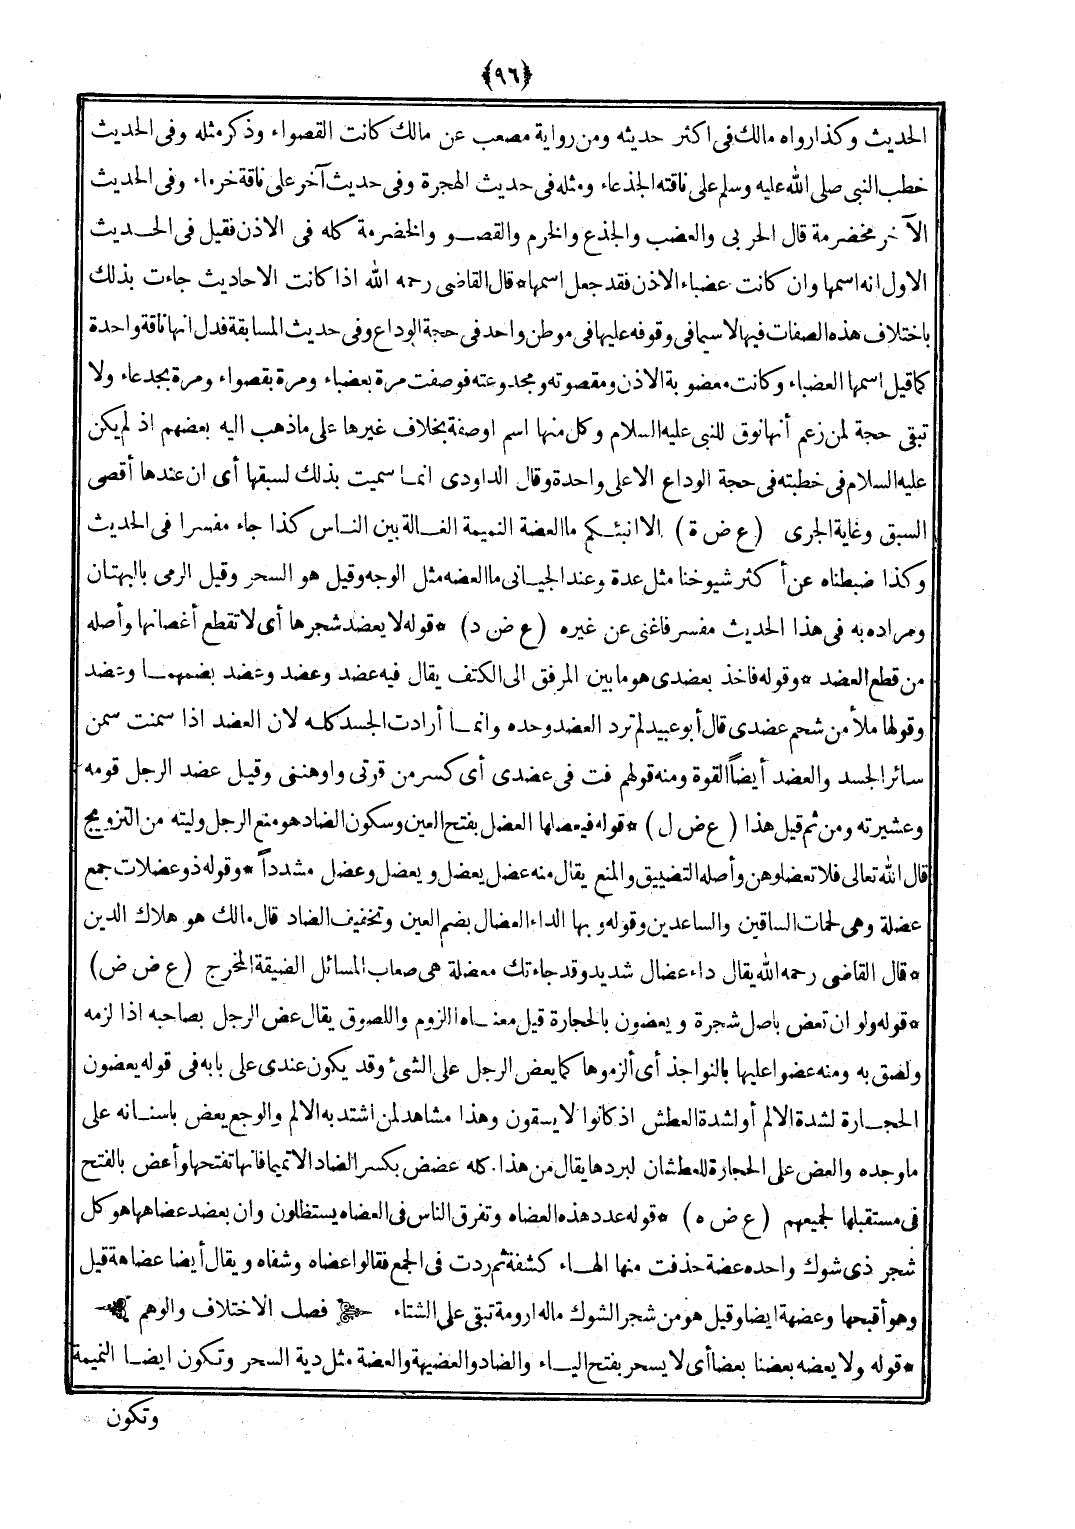 ﴿٩٦﴾
الحديث وكذا رواه مالك فى اكثر حديثه ومن رواية مصعب عن مالك كانت القصواء وذكر مثله وفى الحديث
خطب النبى صلى الله عليه وسلم على ناقته الجذعاء ومثله فى حديث الهجرة وفى حديث آخر على ناقة خرماء وفى الحديث
الآخر مخضرمة قال الحربى والعضب والجذع والخرم والقصو والخضرمة كله فى الاذن فقيل فى الحديث
الاول انه اسمها وان كانت عضباء الاذن فقد جعل اسمها * قال القاضى رحمه الله اذا كانت الاحاديث جاءت بذلك
باختلاف هذه الصفات فيها لاسيما فى وقوفه عليها فى موطن واحد فى حجة الوداع وفى حديث المسابقة فدل انها ناقة واحدة
كما قيل اسمها العضباء وكانت معضوبة الاذن ومقصوته ومجدوعته فوصفت مرة بعضباء ومرة بقصواء ومرة بجدعاء ولا
تبقى حجة لمن زعم أنها نوق للنبى عليه السلام وكل منها اسم اوصفة بخلاف غيرها على ماذهب اليه بعضهم اذ لم يكن
عليه السلام فى خطبته فى حجة الوداع الاعلى واحدة وقال الداودى انما سميت بذلك لسبقها أى ان عندها أقصى
السبق وغاية الجرى (ع ض ة) الا انبئكم ما العضة النميمة القالة بين الناس كذا جاء مفسرا فى الحديث
وكذا ضبطناه عن أكثر شيوخنا مثل عدة وعند الجيانى ما العضه مثل الوجه وقيل هو السحر وقيل الرمى بالبهتان
ومراده به فى هذا الحديث مفسر فاغنى عن غيره (ع ض د) * قوله لا يعضد شجرها أى لا تقطع أغصانها وأصله
من قطع العضد * وقوله فاخذ بعضدى هو مابين المرفق الى الكتف يقال فيه عضد وعضد وعضد بضمهما وعضد
وقولها ملأ من شحم عضدى قال أبو عبيد لم ترد العضد وحده وانما أرادت الجسد كله لان العضد اذا سمنت سمن
سائر الجسد والعضد أيضاً القوة ومنه قولهم فت فى عضدى أى كسر من قوتى واوهننى وقيل عضد الرجل قومه
وعشيرته ومن ثم قيل هذا (ع ض ل) * قوله فيعضلها العضل بفتح العين وسكون الضاد هو منع الرجل وليته من التزويج
قال الله تعالى فلا تعضلوهن وأصله التضييق والمنع يقال منه عضل يعضل ويعضل وعضل مشدداً * وقوله ذو عضلات جمع
عضلة وهى لحمات الساقين والساعدين وقوله وبها الداء العضال بضم العين وتخفيف الضاد قال مالك هو هلاك الدين
* قال القاضى رحمه الله يقال داء عضال شديد وقد جاءتك معضلة هى صعاب المسائل الضيقة المخرج (ع ض ض)
* قوله ولو ان تعض باصل شجرة ويعضون بالحجارة قيل معناه اللزوم واللصوق يقال عض الرجل بصاحبه اذا لزمه
ولصق به ومنه عضوا عليها بالنواجذ أى ألزموها كما يعض الرجل على الشئ وقد يكون عندى على بابه فى قوله يعضون
الحجارة لشدة الالم أو لشدة العطش اذ كانوا لا يسقون وهذا مشاهد لمن اشتد به الالم والوجع يعض باسنانه على
ماوجده والعض على الحجارة للعطشان لبردها يقال من هذا كله عضض بكسر الضاد الا تميما فانها تفتحها وأعض بالفتح
فى مستقبلها لجميعهم (ع ض ه) * قوله عدد هذه العضاه وتفرق الناس فى العضاه يستظلون وان يعضد عضاهها هو كل
شجر ذى شوك واحده عضة حذفت منها الهاء كشفة ثم ردت فى الجمع فقالوا عضاه وشفاه ويقال أيضا عضاهة قيل
وهو أقبحها وعضهة ايضا وقيل هو من شجر الشوك ماله ارومة تبقى على الشتاء فصل الاختلاف والوهم
* قوله ولا يعضه بعضنا بعضا أى لا يسحر بفتح الياء والضاد والعضيهة والعضة مثل دية السحر وتكون ايضا النميمة
وتكون